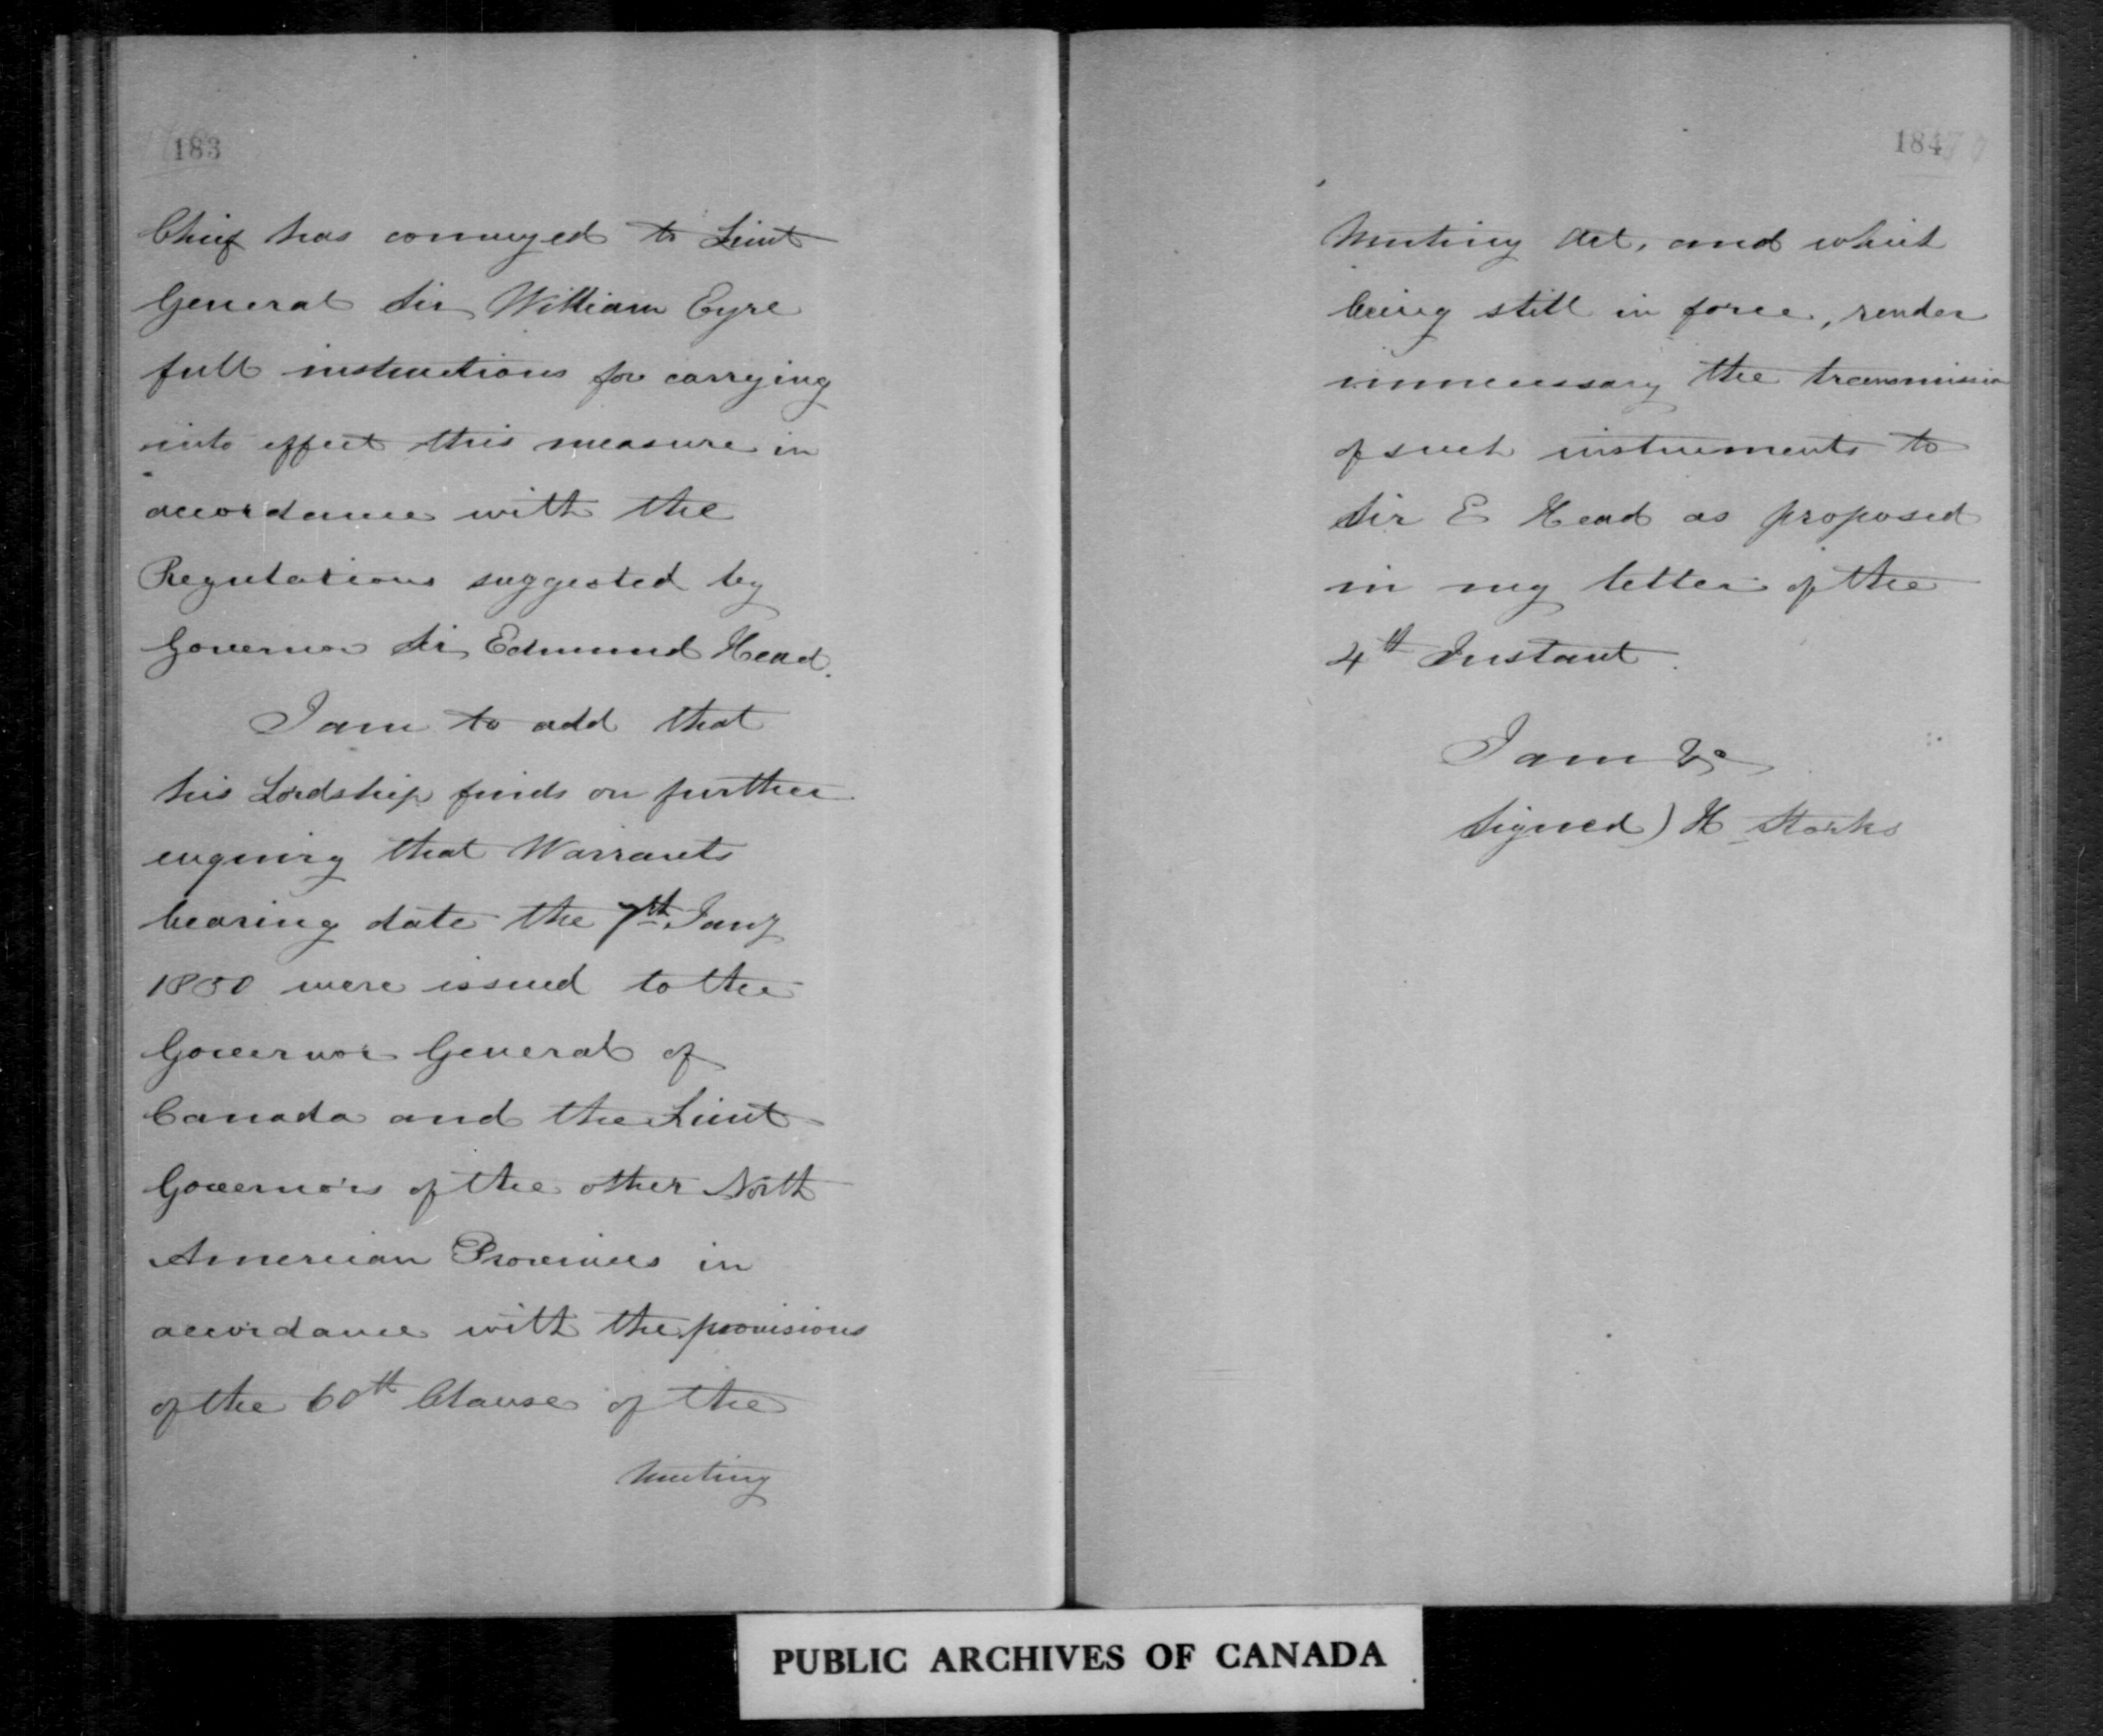 183
Chief has conveyed to Lieut
General Sir William Eyre
full instructions for carrying
into effect this measure in
accordance with the
Regulations suggested by
Governor Sir Edmund Head.
I am to add that
his Lordship finds on further
enquiry that Warrants
bearing date the 7th Jany
1850 were issued to the
Governor General of
Canada and the Lieut
Governors of the other North
American Provinces in
accordance with the provisions
of the 60th Clause of the
Mutiny
184
Mutiny Act, and which
being still in force, render
unnecessary the transmission
of such instruments to
Sir E Head as proposed
in my letter of the
4th Instant.
I am &c
Signed) H Storks
PUBLIC ARCHIVES OF CANADA